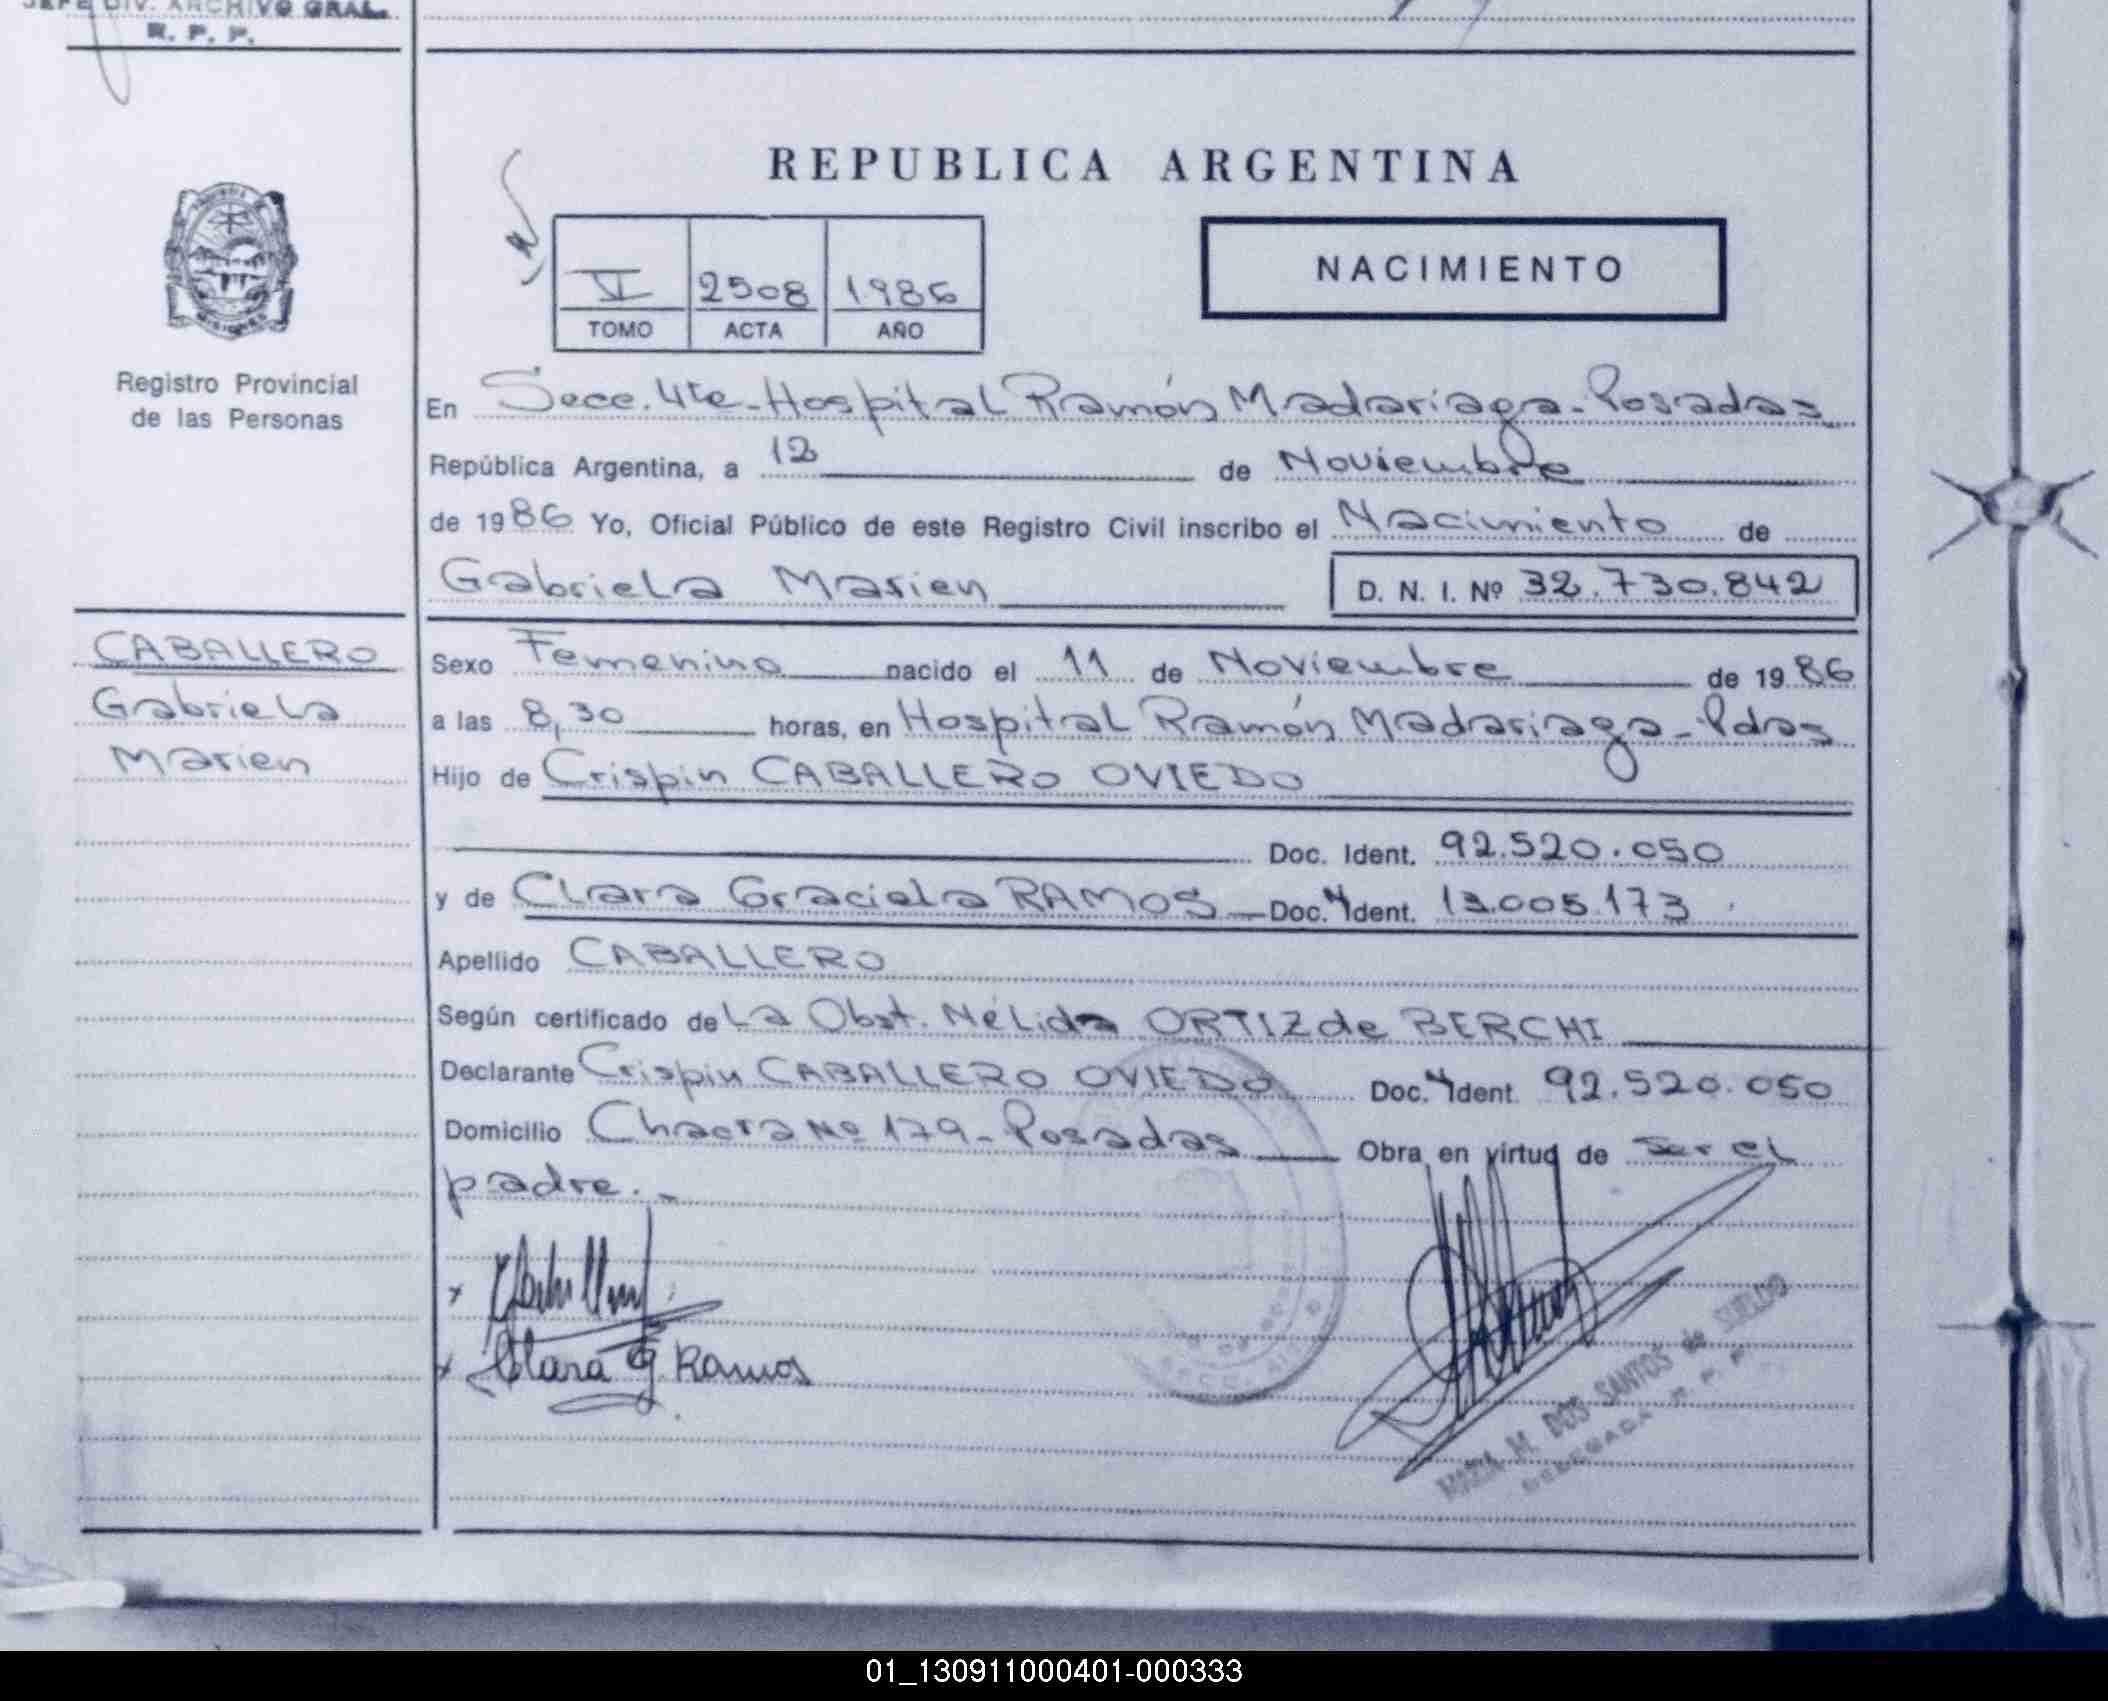 JEFE DIV. ARCHIVO GRAL.
R. P. P.
REPUBLICA ARGENTINA
NACIMIENTO
VI 2508 1986
TOMO ACTA AÑO
Registro Provincial
de las Personas
En Secc. 4ta - Hospital Ramón Madariaga - Posadas
República Argentina, a 12 de Noviembre
de 1986 Yo, Oficial Público de este Registro Civil inscribo el Nacimiento de
Gabriela Marien D. N. I. Nº 32.730.842
CABALLERO
Gabriela
Marien
Sexo Femenino nacido el 11 de Noviembre de 1986
a las 8,30 horas, en Hospital Ramón Madariaga - Pdas
Hijo de Crispin CABALLERO OVIEDO
Doc. Ident. 92.520.050
y de Clara Graciela RAMOS Doc. Ident. 13.005.173
Apellido CABALLERO
Según certificado de La Obst. Nélida ORTIZ de BERCHI
Declarante Crispin CABALLERO OVIEDO Doc. Ident. 92.520.050
Domicilio Chacra Nº 179 - Posadas Obra en virtud de ser el
padre. -
Clara G. Ramos
MARIA M. DOS SANTOS de SUELDO
DELEGADA R. P. P.
01_130911000401-000333